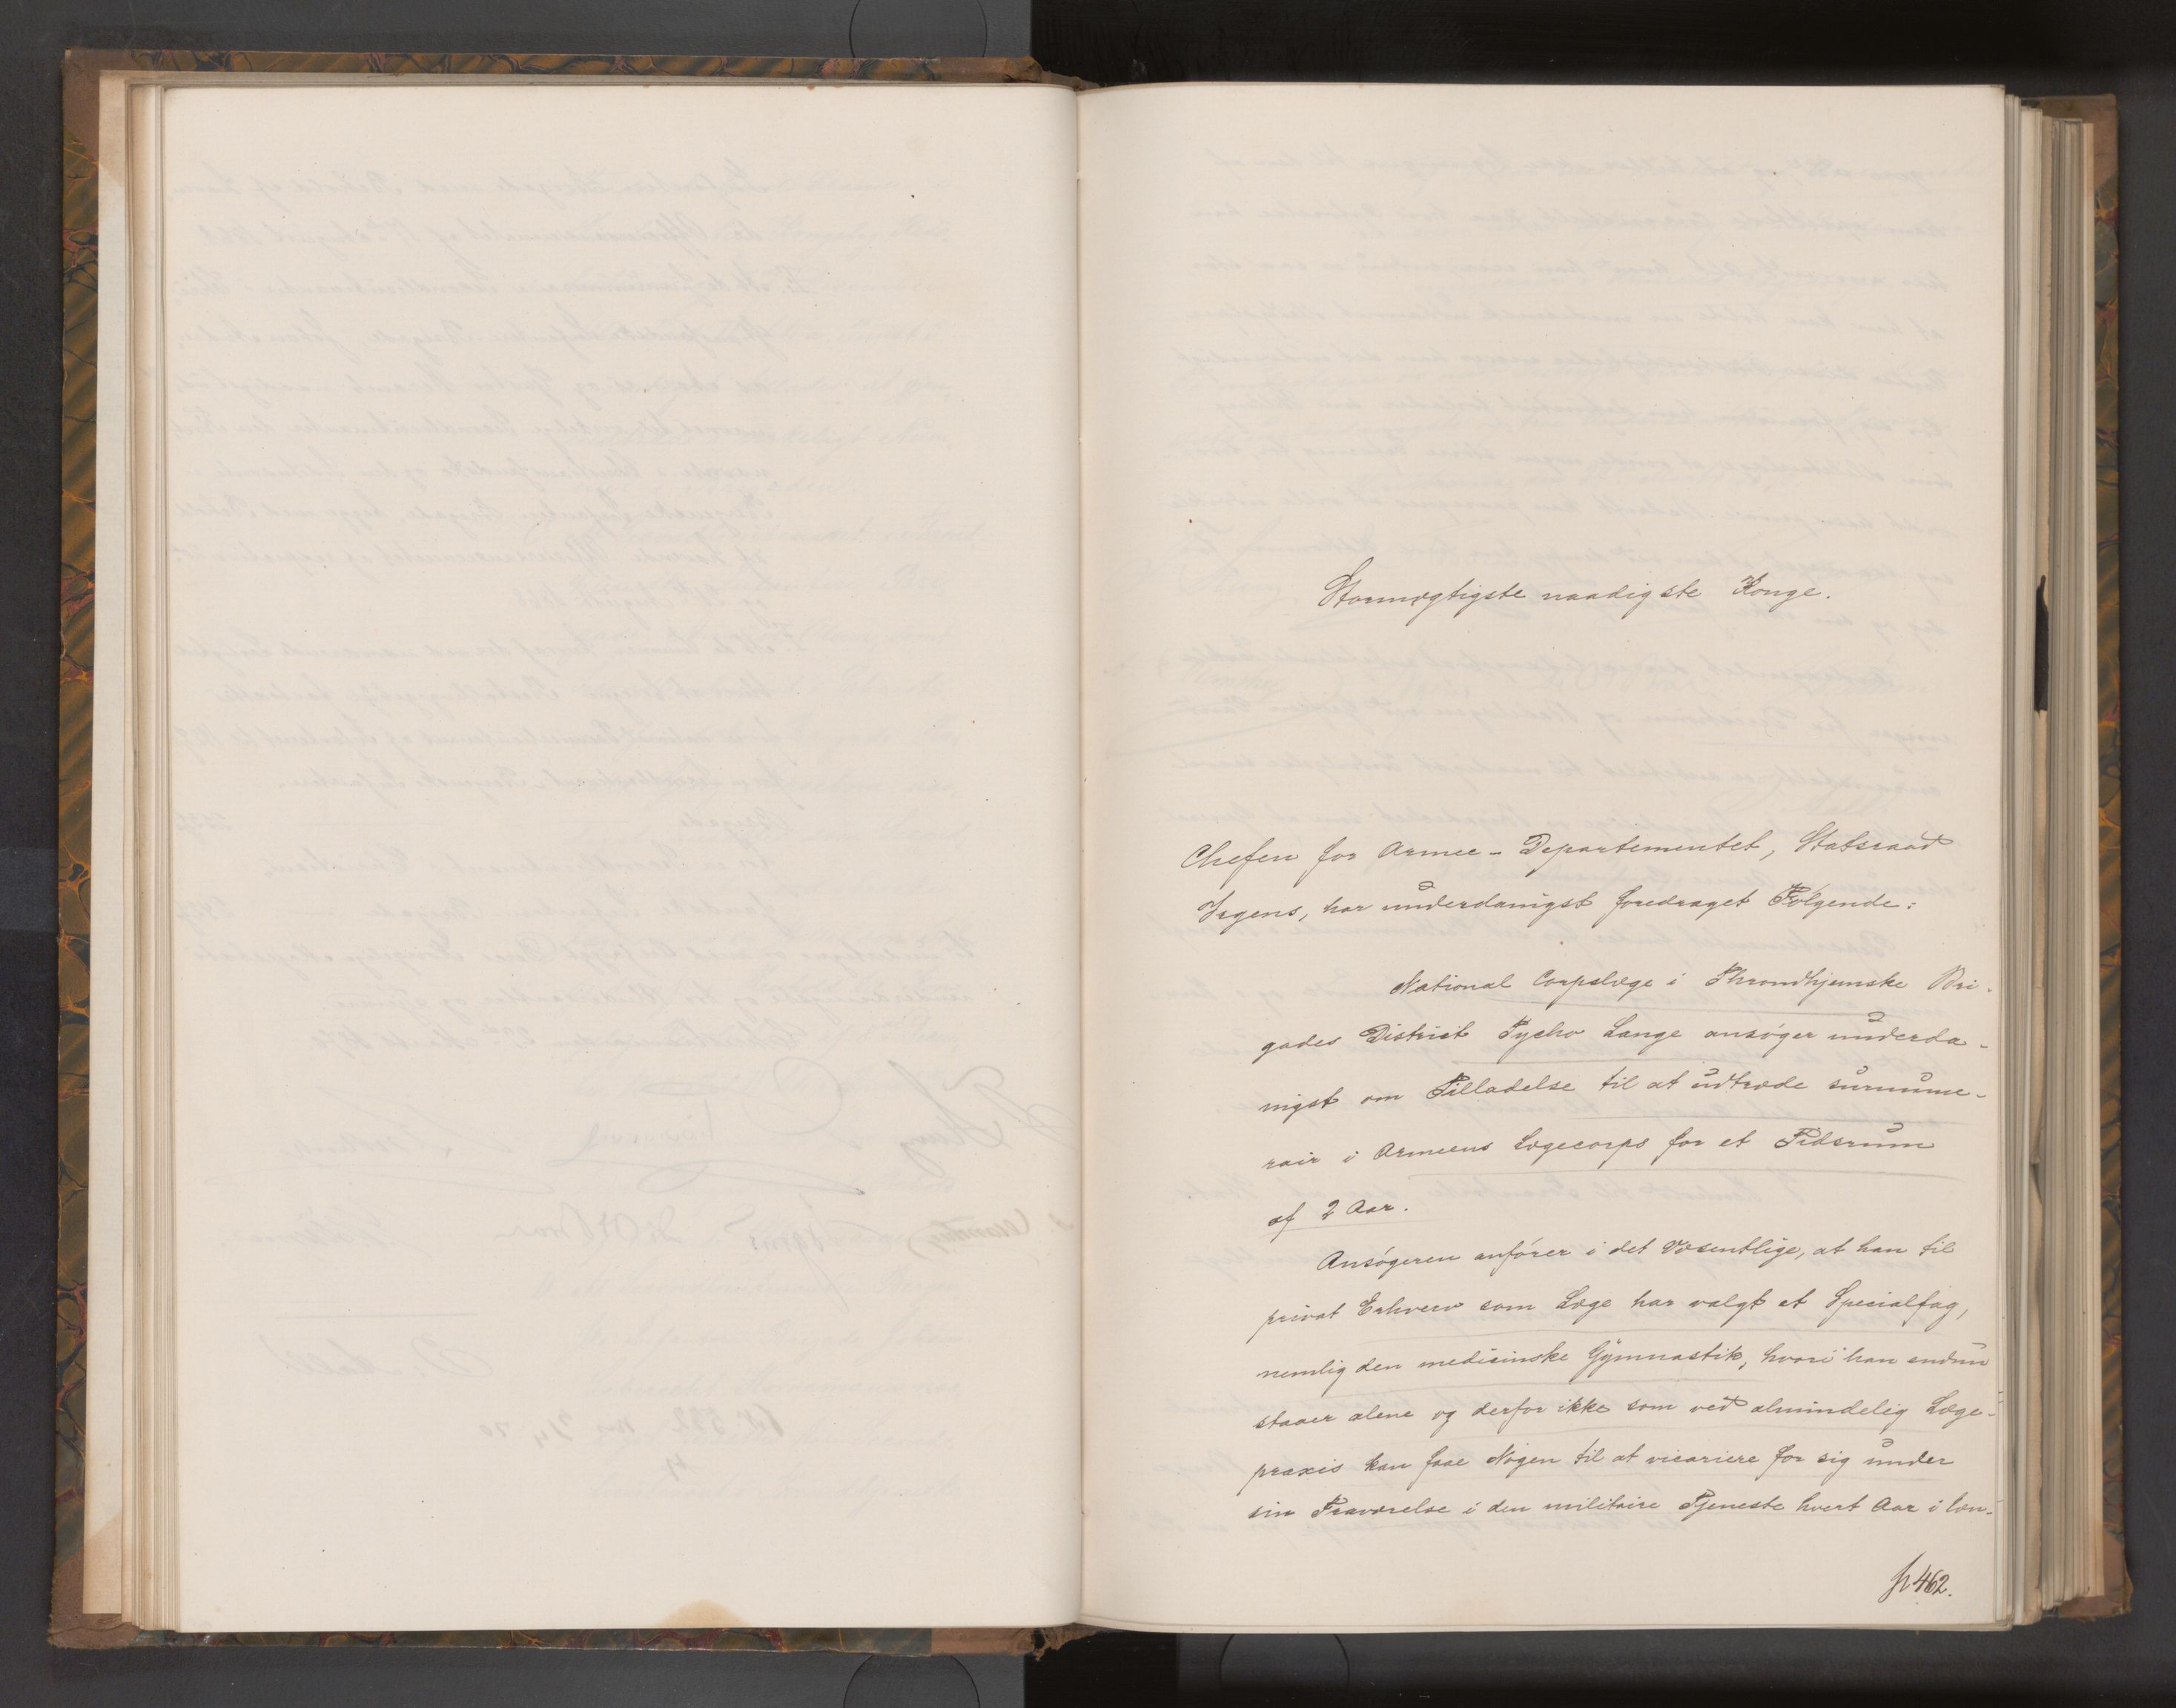 Stormægtigste naadigste Konge.
Chefen for Armee-Departementet, Statsraad
Irgens, har underdanigst foredraget Følgende:
National Corpslæge i Throndhjemske Bri-
gades District Tycho Lange ansøger underda-
nigst om Tilladelse til at udtræde surnume-
rair i Armeens Lægecorps for et Tidsrum
af 2 Aar.
Ansøgeren anfører i det Væsentlige, at han til
privat Erhverv som Læge har valgt et Specialfag,
nemlig den medicinske Gymnastik, hvori han endnu
staaer alene og derfor ikke som ved almindelig Læge-
praxis kan faae Nogen til at vicariere for sig under
sin Fraværelse i den militaire Tjeneste hvert Aar i læn-
462.